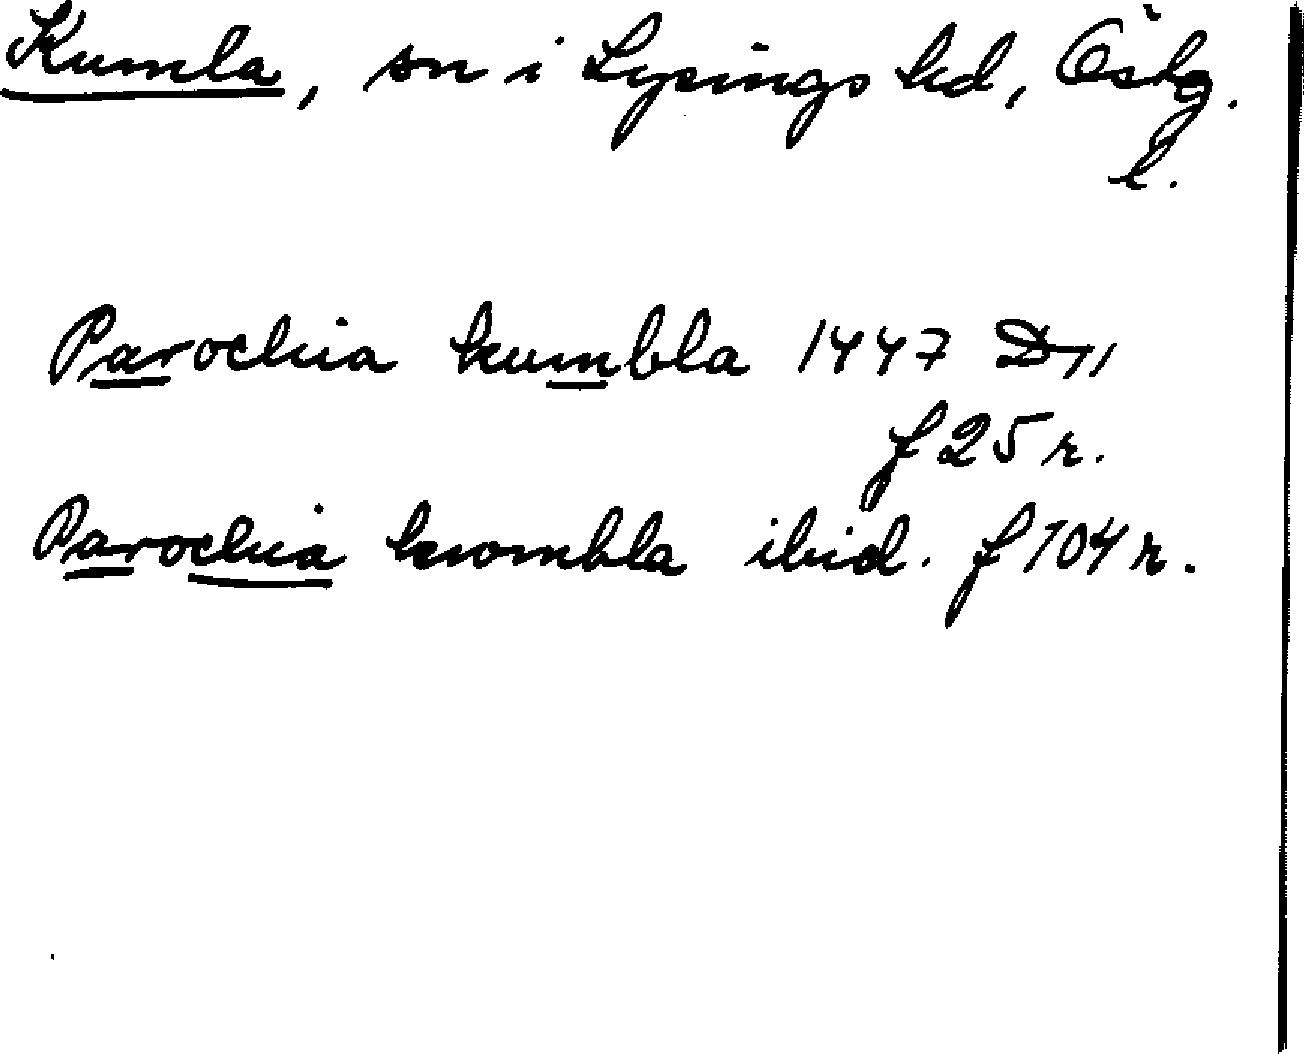 Kumla, sn i Lysings hd, Östg.
l.
Parochia kumbla 1447 D11
f 25 r.
Parochia kwmbla ibid. f 104 r.